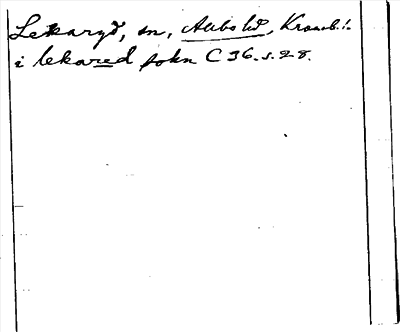 Lekaryd, sn, Allbo hd, Kronob. l.
i lekared sokn C 36. s. 28.